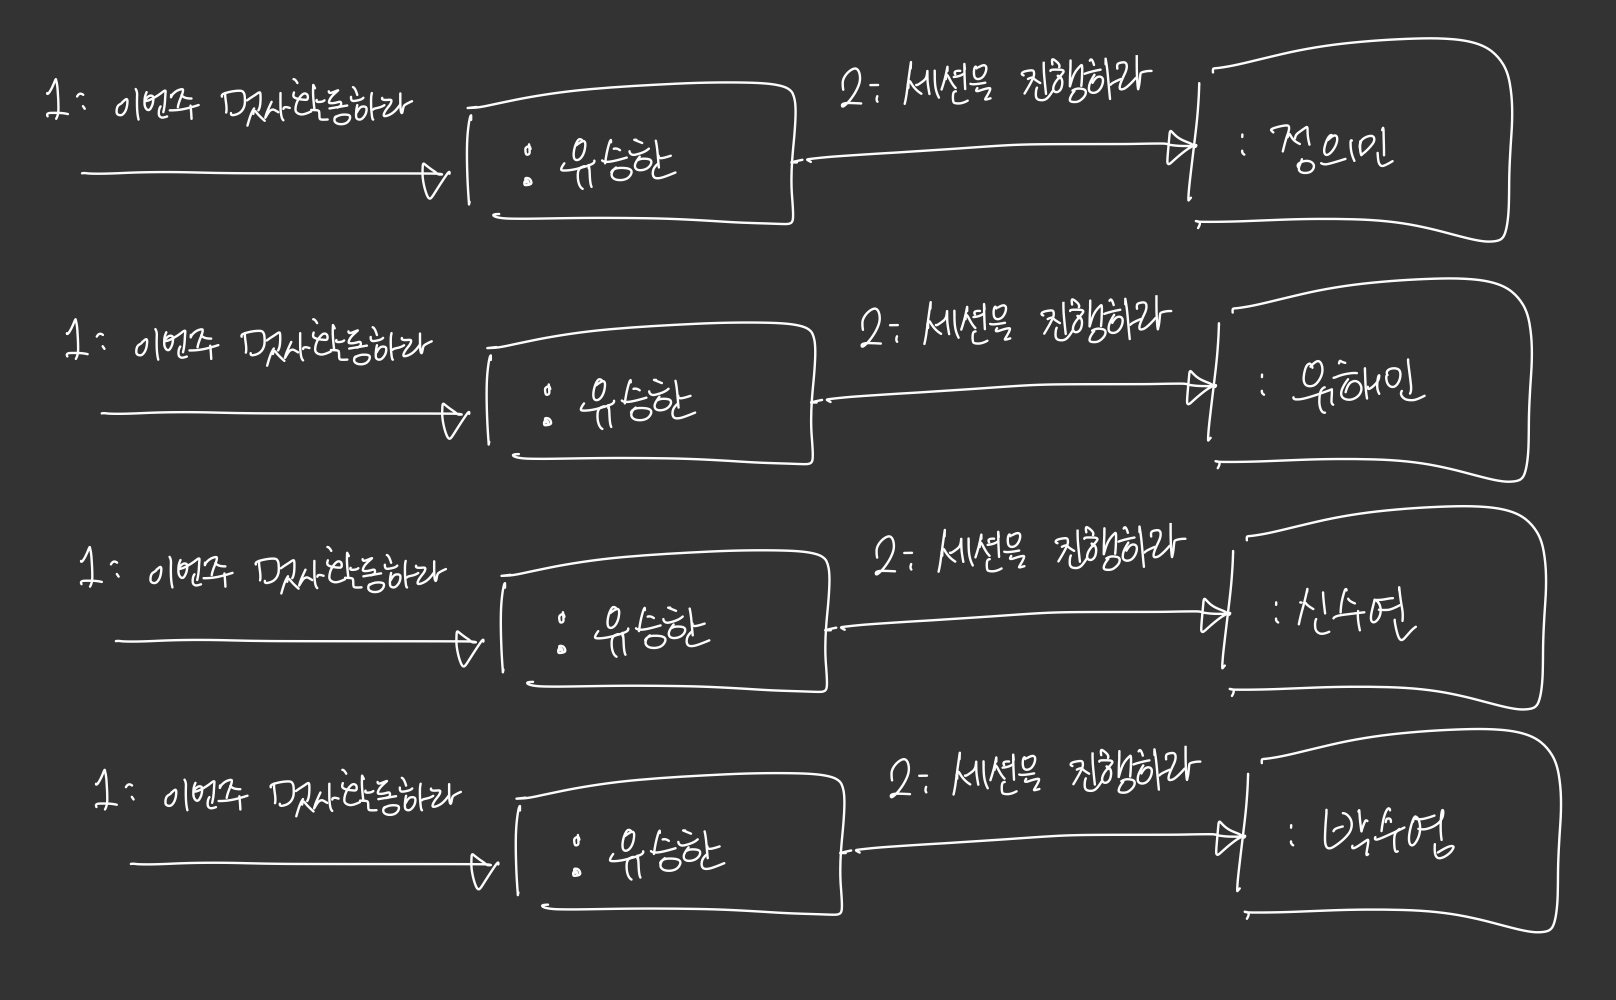 1: 이번주 멋사활동하라
: 유승한
2: 세션을 진행하라
: 정의민
1: 이번주 멋사활동하라
: 유승한
2: 세션을 진행하라
: 유해민
1: 이번주 멋사활동하라
: 유승한
2: 세션을 진행하라
: 신수연
1: 이번주 멋사활동하라
: 유승한
2: 세션을 진행하라
: 박수영